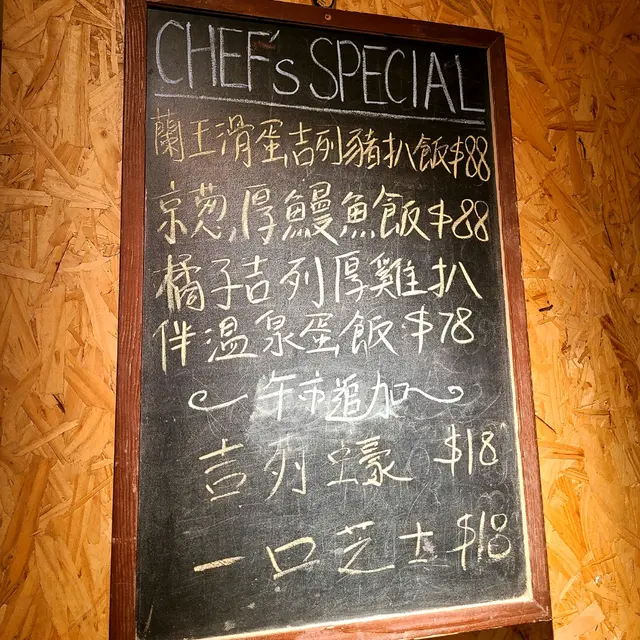 CHEF's SPECIAL
蘭王滑蛋吉列豬扒飯$88
京葱厚鰻魚飯$88
橘子吉列厚雞扒
伴溫泉蛋飯$78
午市追加
吉列蠔 $18
一口芝士 $18